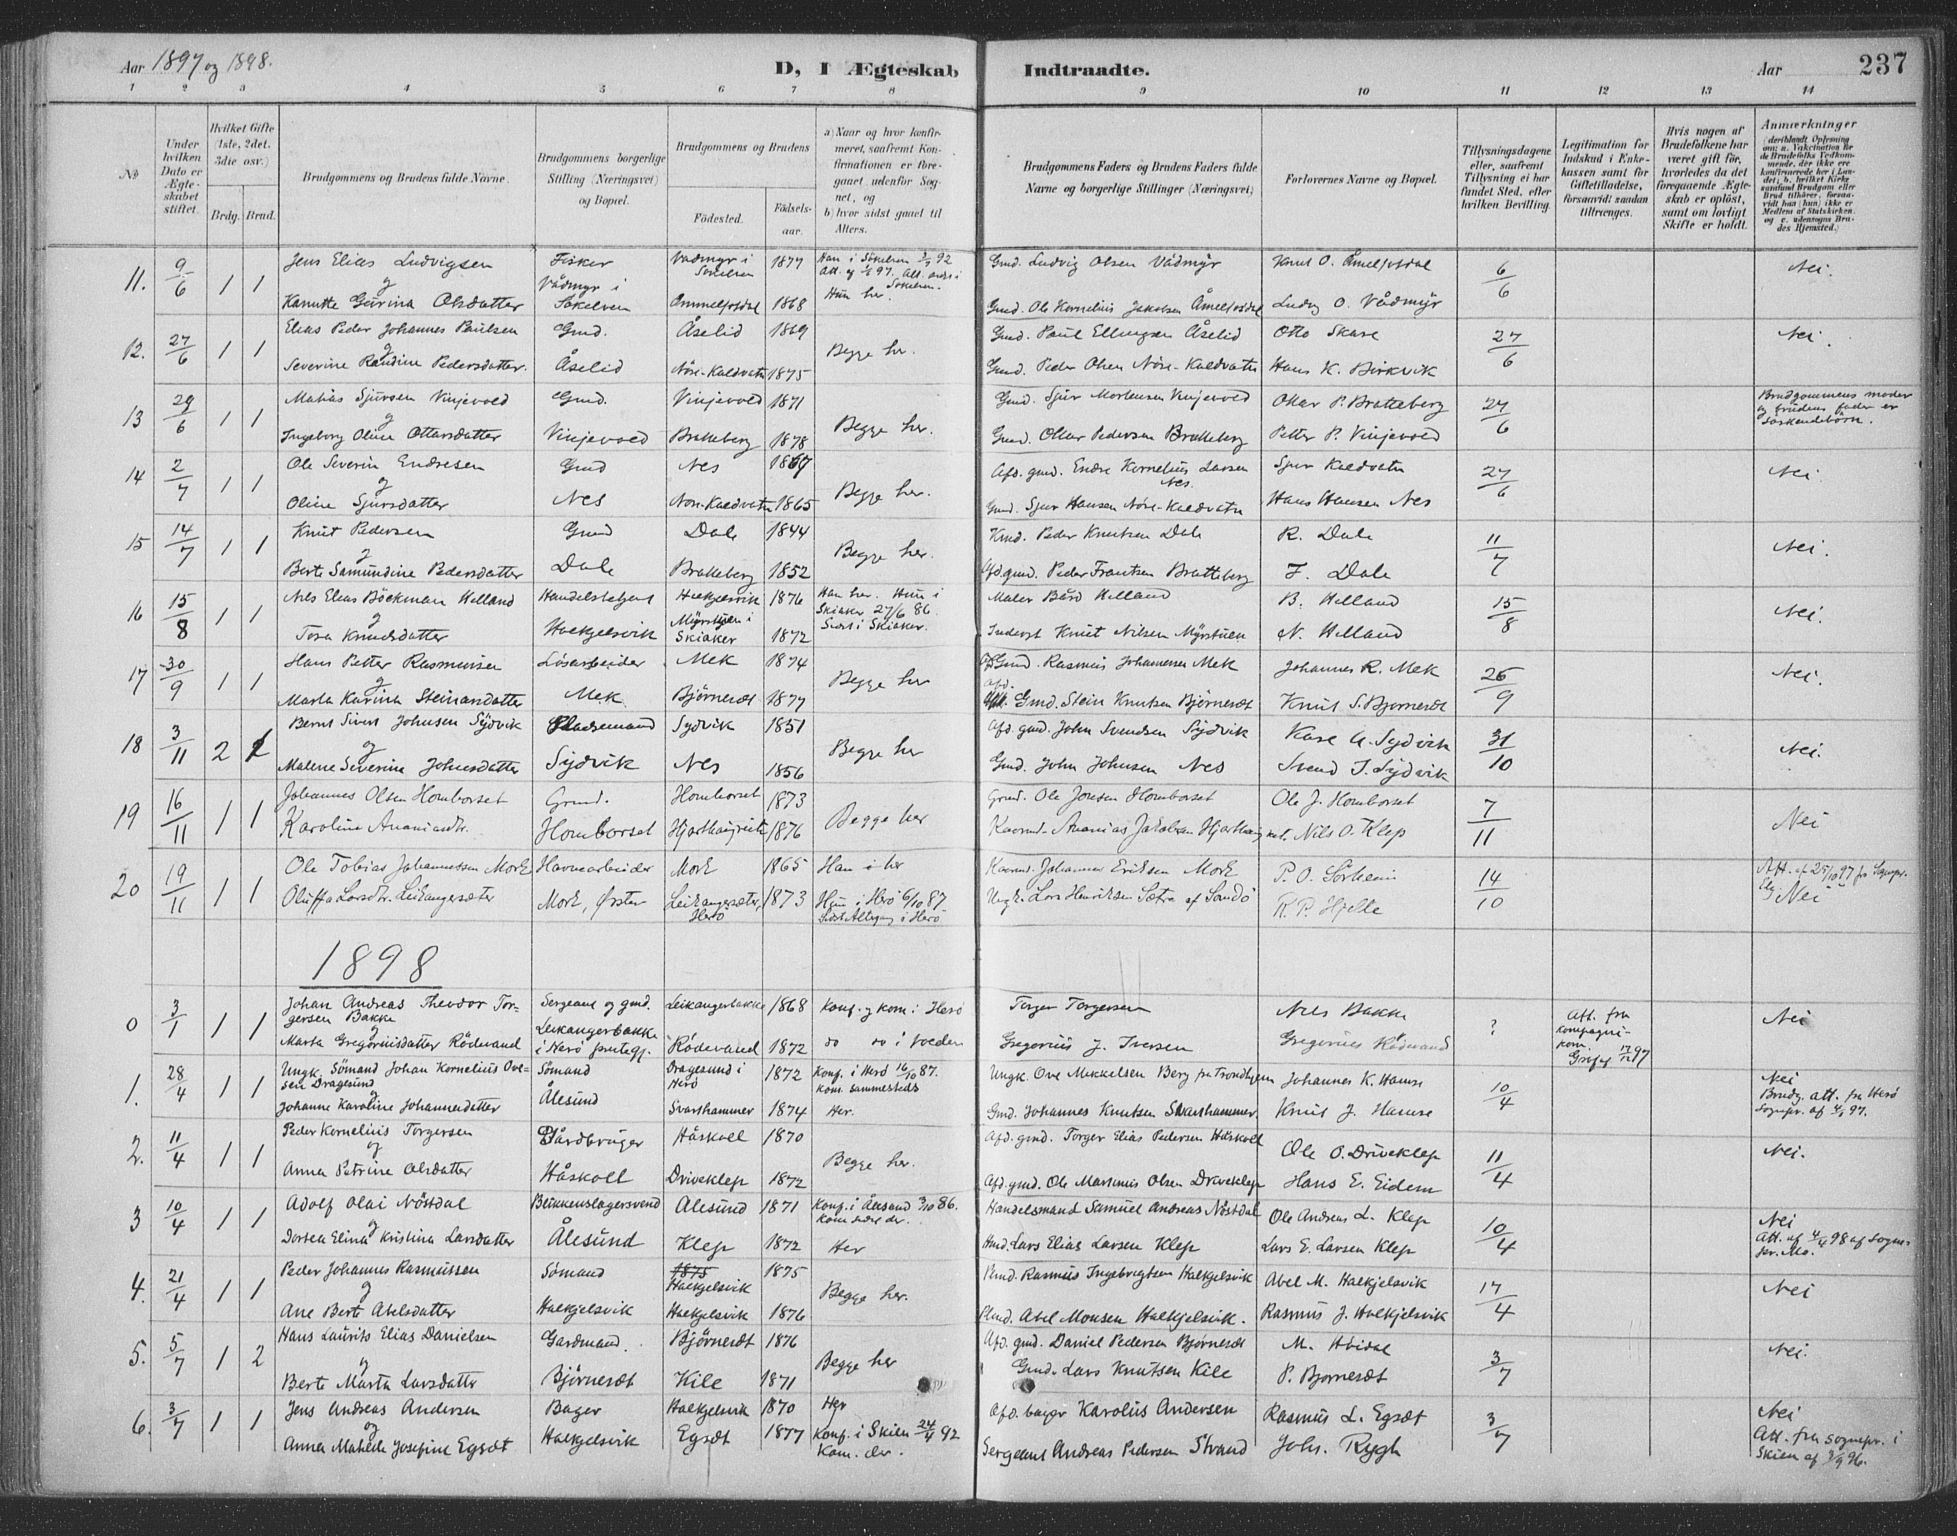 Aar 1897 og 1898.
D, I Ægteskab
Indtraadte.
Aar
237
1 2 3 4 5 6 7 8 9 10 11 12 13 14
No
Under hvilken Dato er Ægteskabet stiftet.
Hvilket Gifte (1ste, 2det, 3die osv.)
Brdg. Brud.
Brudgommens og Brudens fulde Navne.
Brudgommens borgerlige Stilling (Næringsvei) og Bopæl.
Brudgommens og Brudens
Födested.
Födsels-aar.
a) Naar og hvor konfirmeret, saafremt Konfirmationen er foregaaet udenfor Sognet, og
b) hvor sidst gaaet til Alters.
Brudgommens Faders og Brudens Faders fulde Navne og borgerlige Stillinger (Næringsvei)
Forlovernes Navne og Bopæl.
Tillysningsdagene eller, saafremt Tillysning ei har fundet Sted, efter hvilken Bevilling.
Legitimation for Indskud i Enkekassen samt for Giftetilladelse, forsaavidt saadan tiltrænges.
Hvis nogen af Brudefolkene har været gift før, hvorledes da det foregaaende Ægteskab er oplöst, samt om lovligt Skifte er holdt.
Anmærkninger
11. 9/6 1 1 Jens Elias Ludvigsen Fisker Vadmyr i Søkelven 1877 Han i Søkelven 92 Gmd. Ludvig Olsen Vådmyr Knut O. Åmelfosdal 6/6 Nei.
og Vådmyr i
Kanutte Gurina Olsdatter Søkelven Ommelfosdal 1868 Hun her. Gmd. Ole Kornelius Jakobsen Åmelfosdal Ludv. O. Vådmyr
12. 27/6 1 1 Elias Peder Johannes Paulsen Gmd. Åselid 1869 Begge her. Gmd. Paul Ellingsen Åselid Otto Skare 27/6 Nei.
og
Severine Randine Pedersdatter. Åselid Nöre-Kaldvatn 1875 Gmd. Peder Olsen Nöre-Kaldvatn Hans K. Birkvik
13 29/6 1 1 Matias Sjursen Vinjevold Gmd. Vinjevold 1871 Begge her. Gmd. Sjur Mortensen Vinjevold Otkar P. Bratteberg 27/6 Brudgommens moder og brudens fader er søskendebörn.
og
Ingeborg Oline Ottarsdatter Vinjevold Bratteberg 1878 Gmd. Ottar Pedersen Bratteberg Petter P. Vinjevold
14 2/7 1 1 Ole Severin Endresen Gmd Nes 1867 Begge her. Afd. gmd. Endre Kornelius Larsen Nes. Sjur Kaldvatn 27/6 Nei.
og
Oline Sjursdatter Nes Nöre-Kaldvatn 1865 Gmd. Sjur Hansen Nöre-Kaldvatn Hans Hansen Nes
15 14/7 1 1 Knut Pedersen Gmd Dale 1844 Begge her. Kmd. Peder Knutsen Dale R. Dale 11/7 Nei.
og
Berte Samundine Pedersdatter Dale Bratteberg 1852 Afd. gmd. Peder Frantsen Bratteberg J. Dale
16 15/8 1 1 Nils Elias Böckman Helland Handelsbetjent Halkjelsvik 1876 Han her. Hun i Skiaker 27/6 86. Sidst i Skiaker. Maler Bård Helland B. Helland 15/8 Nei.
og
Tora Knudsdatter Halkjelsvik Myrstuen i Skiaker 1872 Inderst Knut Nilsen Myrstuen N. Helland
17 30/9 1 1 Hans Petter Rasmusen Lösarbeider Mek 1874 Begge her Gmd. Rasmus Johannesen Mek Johannes R. Mek 26/9 Nei.
og
Marta Karina Steinarsdatter Mek. Björnesdt 1877 Afd. Gmd. Stein Knutsen Björnesdt Knut S. Bjornesdt
18 3/11 2 Bernt Sivert Johnsen Sydvik Pladsemand Sydvik 1851 Begge her Afd. gmd. John Svendsen Sydvik Kare A. Sydvik 31/10 Nei.
og
Malene Severine Johnsdatter Sydvik Nes 1856 Gmd. John Johnsen Nes Svend J. Sydvik
19 16/11 1 1 Johannes Olsen Homborset Grmd. Homborset 1873 Begge her Grmd. Ole Jonsen Homborset Ole J. Homborset 7/11 Nei
Karoline Ananiasdtr. Homborset 1876 Kaarmd. Ananias Jakobsen Nils O. Klep
20 19/11 1 1 Ole Tobias Johannessen Mork Havnearbeider Mork 1865 Han i her Kaarmd. Johannes Eriksen Mork P. O. Sörheim 14/10 Att. af 25/10 97 fr Sognepr. Nei
Oluffa Larsdtr. Leikangersæter Mork, Ørsten Leikangersæter, Herö 1873 Hun i Herö 6/10 87 Sidst Altergang i Herö Ungk. Lars Henriksen Sætra af Sandö K. P. Hjelle
1898
0 3/1 1 1 Johan Andreas Theodor Torgersen Bakke Sergeant og gmd. Leikangerbakke 1868 Konf. og kom. i Herö Torger Torgersen Nils Bakke ? Att. fra kompagnikom. Nei
og Leikangerbakke
Marta Gregoriusdatter Rödevand i Herö prestegj. Rödevand 1872 do do i Voelden Gregorius J. Iversen Gregorius Rödevand
1. 28/4 1 1 Ungk. Sömand Johan Kornelius Ovesen Dragesund Sömand Dragesund i Herö 1872 Konf. i Herö 16/10 87. Kom. sammesteds Ungk. Ove Mikkelsen Berg fra Trondhjem Johannes K. Hamre 10/4 Nei
og Brudg. att. fra Herö sognepr. af 97.
Johanne Karoline Johannesdatter Ålesund Svarthammer 1874 Her. Gmd. Johannes Knutsen Svarthammer Knut J. Hamre
2. 11/4 1 1 Peder Kornelius Torgersen Gårdbruger Håskoll 1870 Begge her. Afd. gmd. Torger Elias Pedersen Håskoll Ole O. Driveklep 11/4 Nei.
og
Anna Petrine Olsdatter Håskoll Driveklep 1872 Afd. gmd. Ole Martinus Olsen Driveklep Hans E. Eidem
3 10/4 1 1 Adolf Olai Nöstdal Blikkenslagersvend Ålesund 1871 Konf. i Ålesund 3/10 86. Kom. der. Handelsmand Samuel Andreas Nöstdal Ole Andreas L. Klep 10/4 Nei
og Att. af 4/4 98 af sognepr. Mo.
Dortea Elina Kristina Larsdatter Ålesund Klep 1872 Her Gmd. Lars Elias Larsen Klep Lars E. Larsen Klep
4. 21/4 1 1 Peder Johannes Rasmussen Sömand 1875 Halkjelsvik 1875 Begge her. Plmd. Rasmus Ingebrigtsen Halkjelsvik Abel M. Halkjelsvik 17/4 Nei
og
Ane Berte Abelsdatter Halkjelsvik Halkjelsvik 1876 Plmd. Abel Monsen Halkjelsvik. Rasmus J. Halkjelsvik
5. 5/7 1 2 Hans Laurits Elias Danielsen Gardmand. Björnesdt 1876 Begge her Afd. gmd. Daniel Pedersen Björnesdt M. Hovdal 3/7 Nei.
og
Berte Marta Larsdatter Björnesdt Kile 1871 Gmd. Lars Knutsen Kile P. Bjornesdt
6. 3/7 1 1 Jens Andreas Andersen Bager Halkjelsvik 1870 Her Afd. bager Karolius Andersen Rasmus L. Egsdt 3/7 Nei
og
Anna Matilde Josefine Egsdt Halkjelsvik Egsdt 1877 Konf. i Skien 24/4 92 Kom. der. Sergeant Andreas Pedersen Strand Johs. Rygh Att. fra sognepr. i Skien af 96.